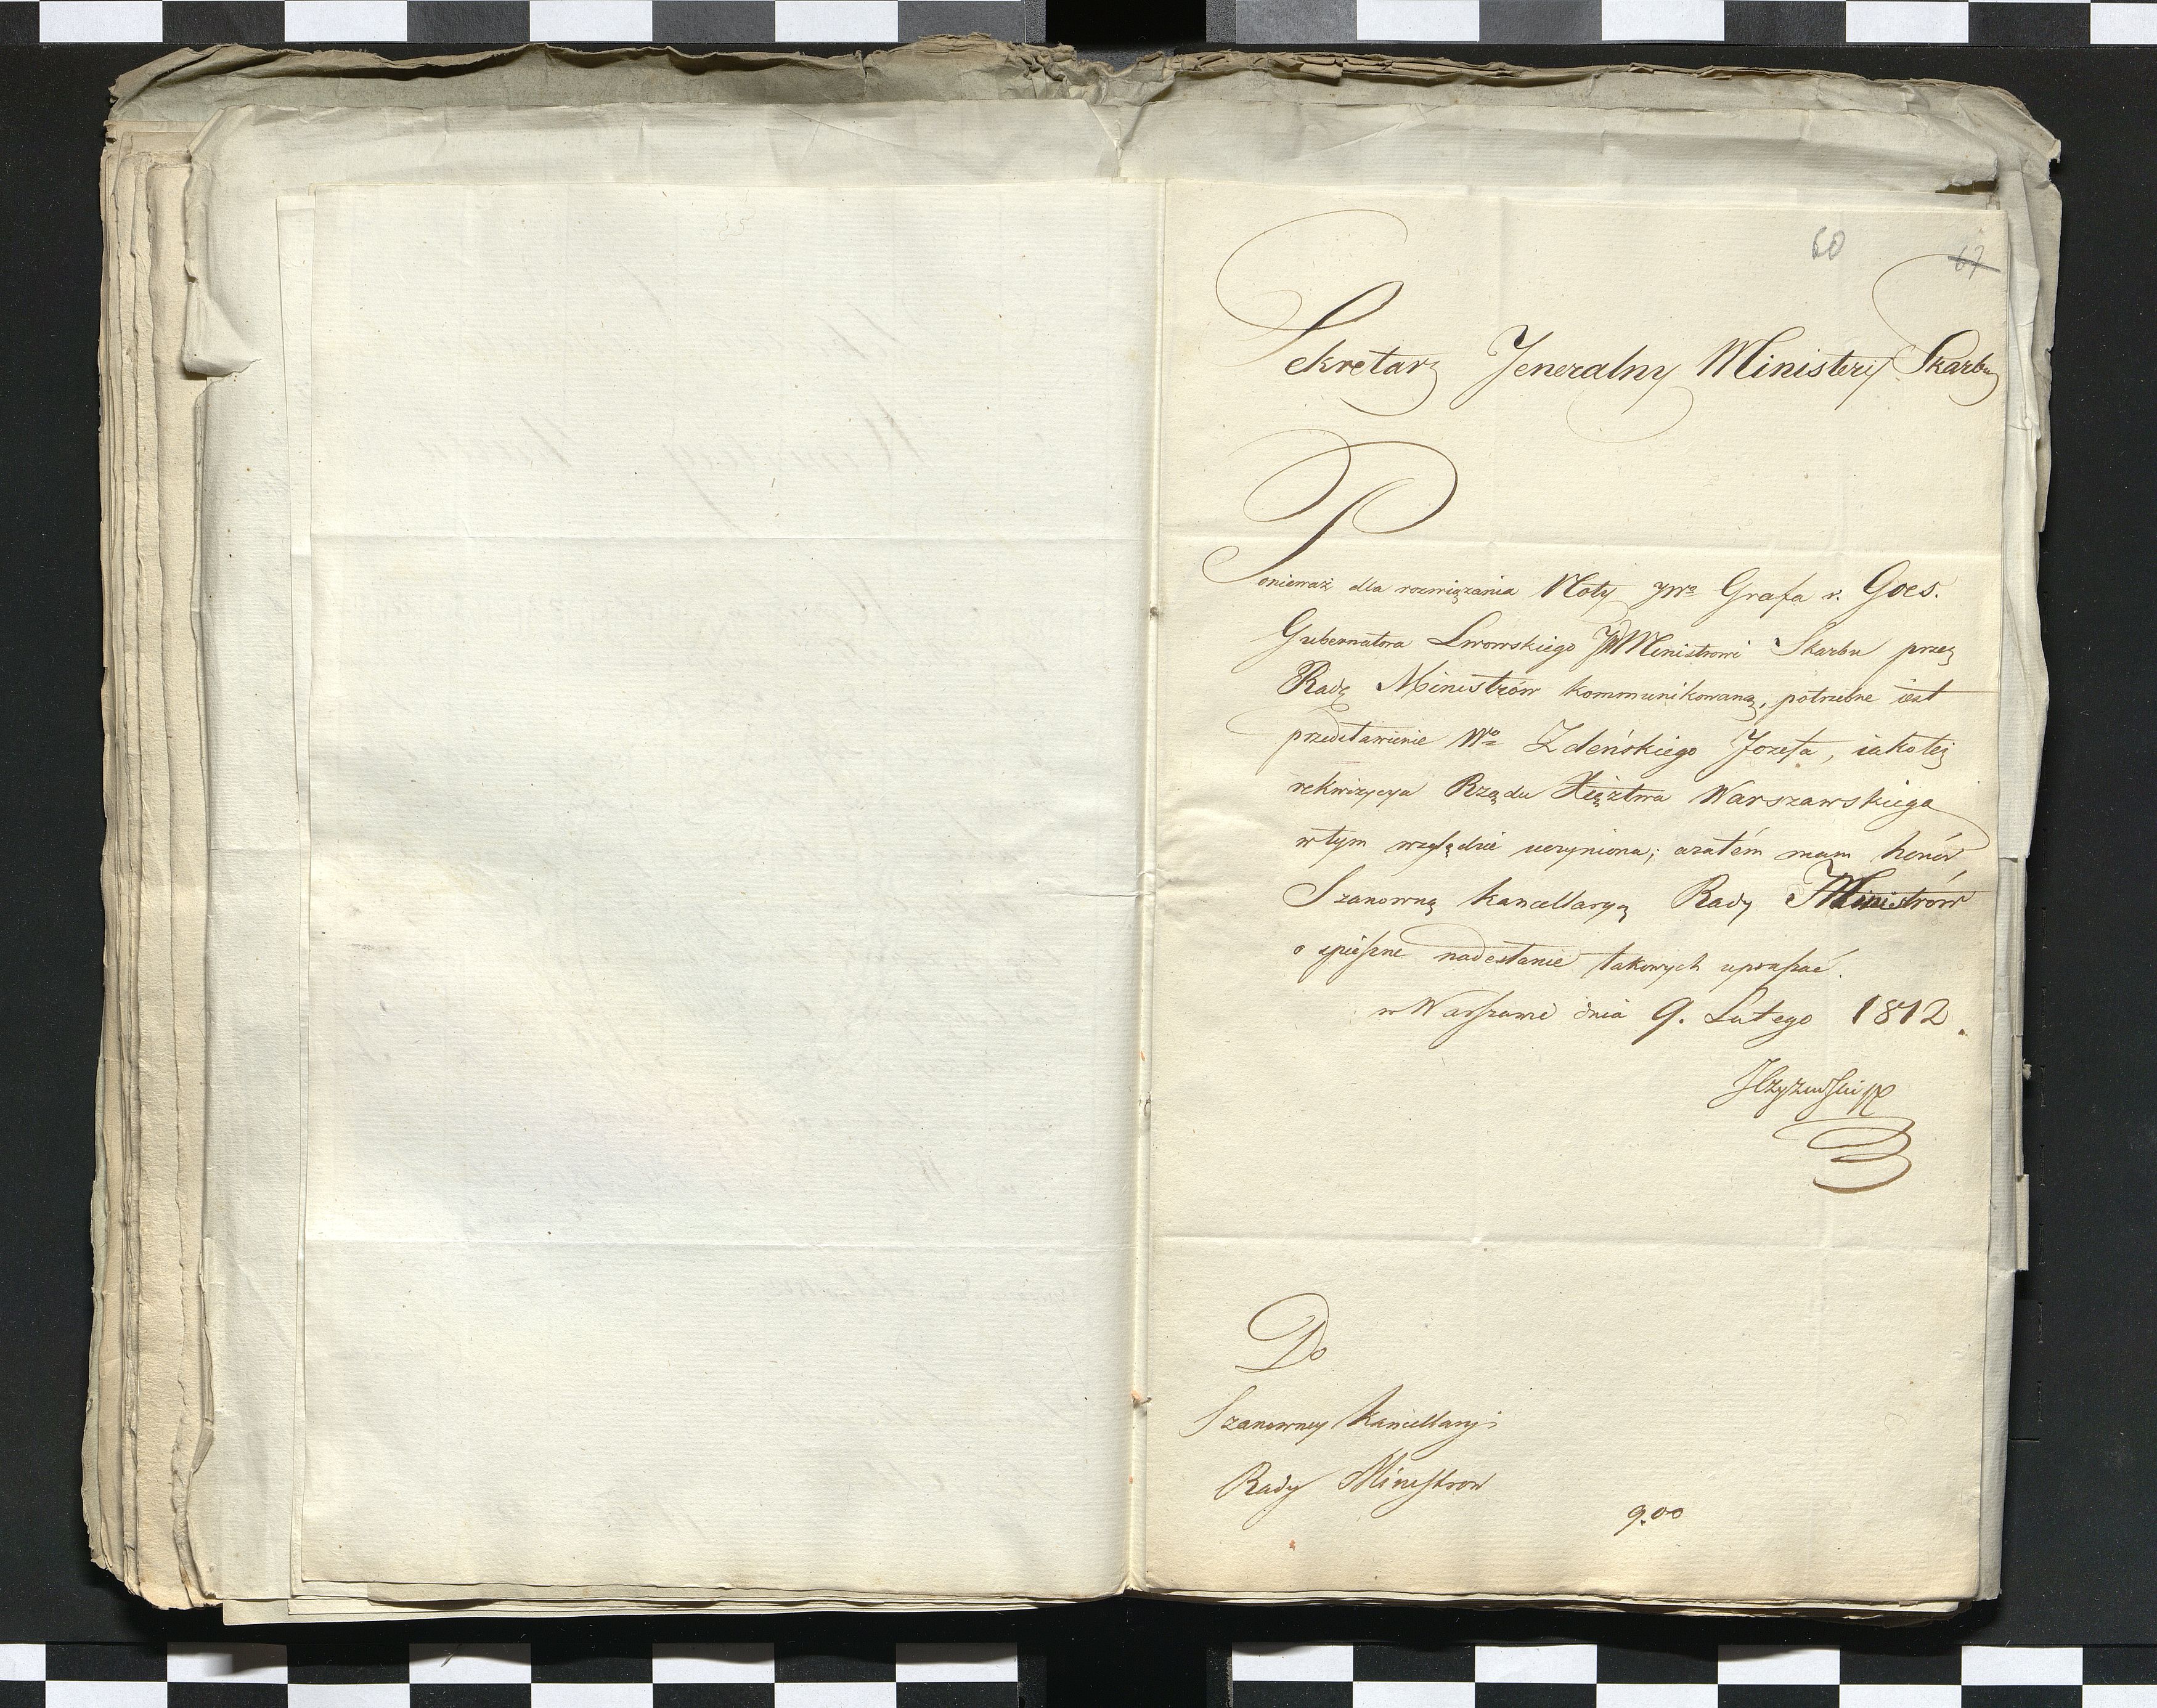 60
67
Sekretarz Jeneralny Ministeryi Skarbu
Ponieważ dla rozwiązania Noty JWo Grafa v. Goes.
Gubernatora Lwowskiego JW Ministrowi Skarbu przez
Radę Ministrów kommunikowaną, potrzebne iest
przedstawienie Wo Zdeńskiego Jozefa, iako też
rekwizycya Rządu Xięztwa Warszawskiego
w tym względzie uczyniona; azatém mam honor
Szanowną Kancellaryą Rady Ministrów
o spieszne nadesłanie takowych upraszać.
w Warszawie dnia 9. Lutego 1812.
Do
Szanowney Kancellaryi
Rady Ministrow
900